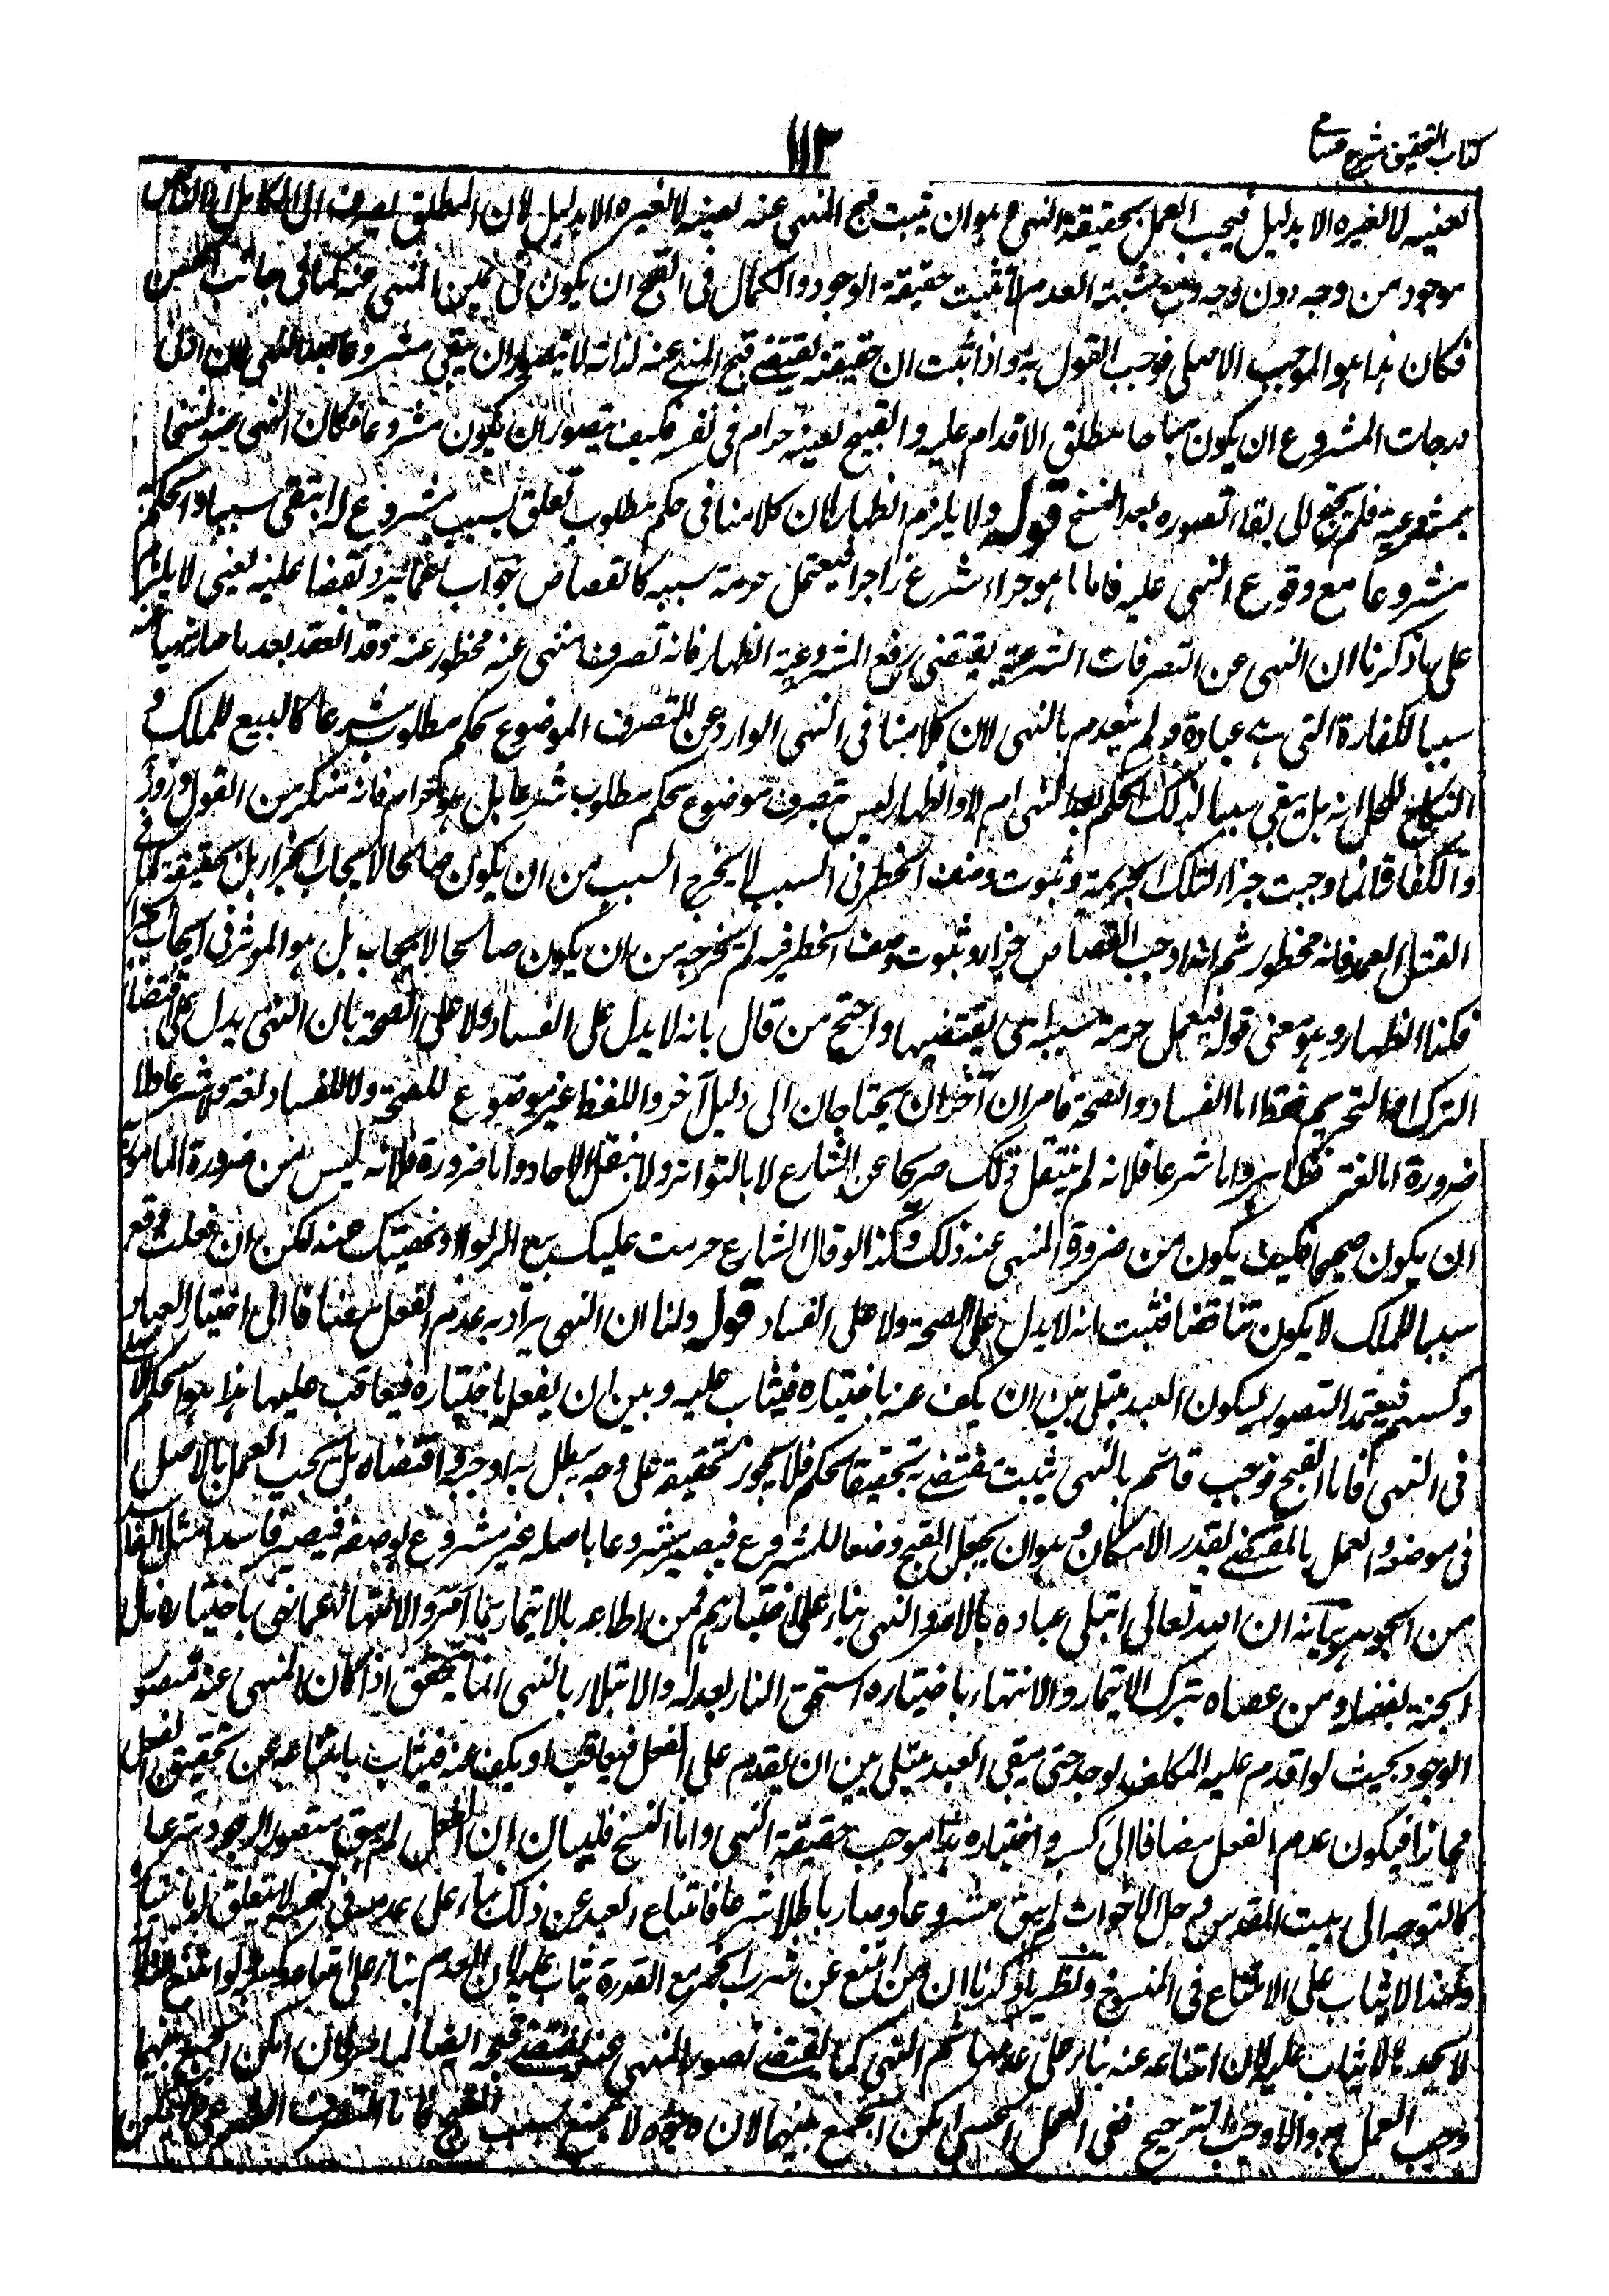 كتاب التحقيق شرح حسامى
١١٢
لعينه لا لغيره الا بدليل فيجب العمل بحقيقة النهى وهو ان يثبت قبح المنهى عنه لعينه لا لغيره الا بدليل لان المطلق يصرف الى الكامل اذ الناقص
موجود من وجه دون وجه ومع شبهة العدم لا تثبت حقيقة الوجود والكمال فى القبح ان يكون فى عين المنهى عنه كما فى جانب الحسن
فكان هذا هو الموجب الاصلى فوجب القول به واذا ثبت ان حقيقته تقتضى قبح المنهى عنه لذاته لا يتصور ان يبقى مشروعا بعد النهى لان ادنى
درجات المشروع ان يكون مباحا مطلق الاقدام عليه والقبيح لعينه حرام فى نفسه فكيف يتصور ان يكون مشروعا فكان النهى عنه نسخا
لمشروعيته فلم يحتج الى بقاء تصوره بعد النسخ قوله ولا يلزم الظهار لان كلامنا فى حكم مطلوب تعلق بسبب مشروع له ابقى سببا والحكم به
مشروعا مع وقوع النهى عليه فاما ما هو جزاء شرع زاجرا فيعتمل حرمة سببه كالقصاص جواب عما يرد نقضا عليه يعنى لا يلزم
على ما ذكرنا ان النهى عن التصرفات الشرعية يقتضى رفع المشروعية الظهار فانه تصرف منهى عنه محظور عنه وقد انعقد بعد ما صار منهيا عنه
سببا للكفارة التى هى عبادة ولم ينعدم بالنهى لان كلامنا فى النهى الوارد عن التصرف الموضوع لحكم مطلوب شرعا كالبيع للملك و
النكاح للحل انه هل يبقى سببا لذلك الحكم بعد النهى ام لا والظهار ليس بتصرف موضوع لحكم مطلوب شرعا بل هو حرام فانه منكر من القول وزور
والكفارة انما وجبت جزاء لتلك الجريمة وثبوت وصف الحظر فى السبب لا يخرج السبب من ان يكون صالحا لايجاب الجزاء بل يحققه كما فى
القتل العمد فانه محظور ثم انه اوجب القصاص جزاء وثبوت وصف الحظر فيه لم يخرجه من ان يكون صالحا لايجاب بل هو المؤثر فى ايجاب الجزاء
فكذا الظهار وهو معنى قوله فيعتمل حرمة سببه اى يقتضيها واحتج من قال بانه لا يدل على الفساد ولا على الصحة بان النهى يدل على اقتضاء
الترك او التحريم فقط اما الفساد والصحة فامران آخران يحتاجان الى دليل آخر واللفظ غير موضوع للصحة ولا للفساد لغة ولا شرعا ولا
ضرورة اما لغة فظاهر واما شرعا فلانه لم ينقل ذلك صريحا عن الشارع لا بالتواتر ولا بنقل الاحاد واما ضرورة فلانه ليس من ضرورة المامور به
ان يكون صحيحا فكيف يكون من ضرورة المنهى عنه ذلك وكذا لو قال الشارع حرمت عليك بيع الربوا او نهيتك عنه لكن ان فعلت وقع
سببا للملك لا يكون تناقضا فثبت انه لا يدل على الصحة ولا على الفساد قوله ولنا ان النهى يراد به عدم الفعل مضافا الى اختيار العباد
وكسبهم فيعتمد التصور ليكون العبد مبتلى بين ان يكف عنه باختياره فيثاب عليه وبين ان يفعل باختياره فيعاقب عليها هذا هو الحكم الاصلى
فى النهى فاما القبح فوجب قائم بالنهى يثبت مقتضى به تحقيقا لحكمه فلا يجوز تحقيقه على وجه يبطل به ما اوجبه واقتضاه بل يجب العمل بالاصل
فى موضعه والعمل بالمقتضى بقدر الامكان وهو ان يجعل القبح وصفا للمشروع فيصير مشروعا باصله غير مشروع بوصفه فيصير فاسدا مثل الفاسد
من الجوهر بيانه ان الله تعالى ابتلى عباده بالامر والنهى بناء على اختيارهم فمن اطاعه بالايتمار بما امر والانتهاء عما نهى باختياره نال
الجنة بفضله ومن عصاه بترك الايتمار والانتهاء باختياره استحق النار بعدله والابتلاء بالنهى انما يتحقق اذا كان المنهى عنه متصور
الوجود بحيث لو اقدم عليه المكلف لوجد حتى يبقى العبد مبتلى بين ان يقدم على الفعل فيعاقب او يكف عنه فيثاب بامتناعه عن تحقيق الفعل
مختارا فيكون عدم الفعل مضافا الى كسبه واختياره هذا موجب حقيقة النهى واما النسخ فلبيان ان الفعل لم يبق متصور الوجود شرعا
كالتوجه الى بيت المقدس وحل الاخوات لم يبق مشروعا وصار باطلا شرعا فامتناع العبد عن ذلك بناء على عدمه فى نفسه لا تعلق له باختياره
ولهذا لا يثاب على الامتناع فى المنسوخ ونظير ما ذكرنا ان من امتنع عن شرب الخمر مع القدرة يثاب عليه لان العدم بناء على امتناعه ولو امتنع
لا يجدها لا يثاب عليه لان امتناعه عنه بناء على عدمها ثم النهى كما يقتضى تصور المنهى عنه يقتضى قبحه ايضا فان امكن الجمع بينهما
وجب العمل به والا وجب الترجيح ففى الفعل الحسى امكن الجمع بينهما لان وجوده لا يمتنع بسبب القبح فاما التصرف الشرعى فلا يمكن